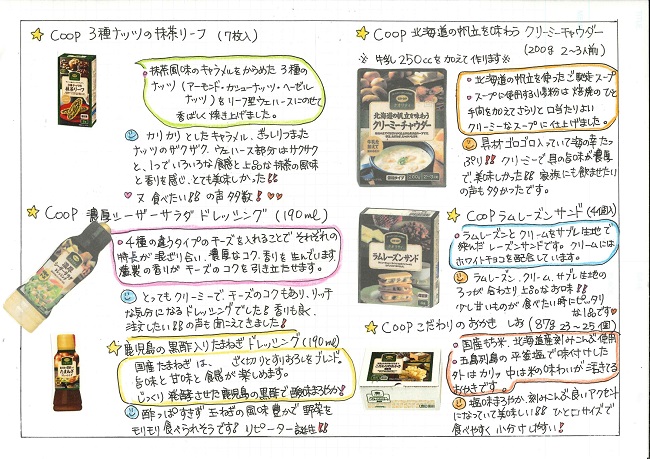 ☆ COOP 3種ナッツの抹茶リーフ (7枚入)
・抹茶風味のキャラメルをからめた3種の
ナッツ(アーモンド・カシューナッツ・ヘーゼル
ナッツ)をリーフ型ウェハースにのせて
香ばしく焼き上げました。
カリカリとしたキャラメル、ぎっしりつまった
ナッツのザクザク、ウェハース部分はサクサク
と、1つでいろいろな食感と上品な抹茶の風味
と香りを感じ、とても美味しかった!!
♥ 又食べたい!!の声多数!
☆ COOP 濃厚シーザーサラダドレッシング (190ml)
・4種の違うタイプのチーズを入れることでそれぞれの
特長が混ざり合い、濃厚なコク、香りを生んでいます
燻製の香りがチーズのコクを引き立たせます。
とってもクリーミーで、チーズのコクもあり、リッチ
な気分になるドレッシングでした!香りも良く、
注文したい!!の声も聞こえてきました!
☆ 鹿児島の黒酢入りたまねぎドレッシング (190ml)
国産たまねぎは、ざく切りとすりおろしをブレンド。
旨味と甘味と食感が楽しめます。
じっくり発酵させた鹿児島の黒酢で酸味まろやか!
酢っぱすぎず玉ねぎの風味豊かで野菜を
モリモリ食べられそうです!リピーター誕生!!
☆ COOP 北海道の帆立を味わうクリーミーチャウダー
(200g 2~3人前)
※牛乳250ccを加えて作ります※
・北海道の帆立を使ったご馳走スープ
・スープに使用する小麦粉は焙煎のひと
手間を加えてさらりと口当たりよい
クリーミーなスープに仕上げました。
具材ゴロゴロ入っていて海の幸たっ
ぷり!!クリーミーで具の旨味が濃厚
で、美味しかった!!家族にも飲ませたい
の声も多かったです。
北海道の帆立を味わう
クリーミーチャウダー
☆ COOP ラムレーズンサンド (4個入)
・ラムレーズンとクリームをサブレ生地で
挟んだレーズンサンドです。クリームには
ホワイトチョコを配合しています。
ラムレーズン、クリーム、サブレ生地の
3つが合わさり上品なお味!!
少し甘いものが食べたい時にピッタリ
な1品です♥
ラムレーズンサンド
☆ COOP こだわりのおかき しお (87g 23~25個)
・国産もち米、北海道産刻みこんぶ使用
・五島列島の平釜塩で味付けした
外はカリッ中は米のの味わいが活きてる
おかきです。
塩味まろやか、刻みこんぶ良いアクセント
になっていて美味しい!!ひと口サイズで
食べやすく小分けしやすい!